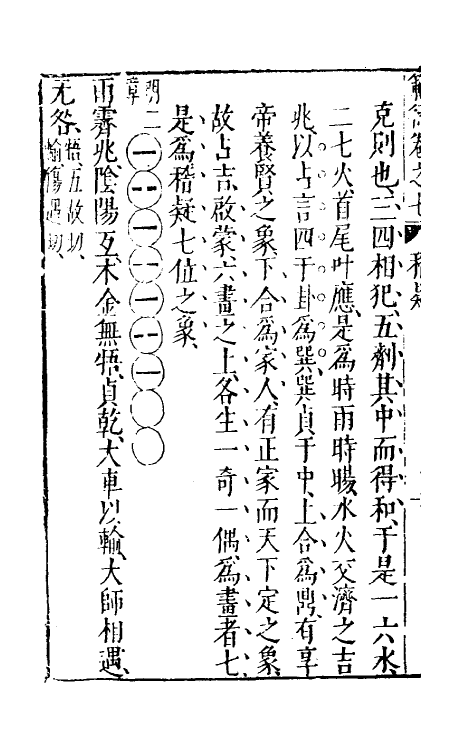 克則也、三四相犯、五劑其中而得和、于是一六水、
二七火、首尾叶應、是爲時雨時暘、水火交濟之吉
兆、以占言四于卦爲巽、巽貞于中、上合爲鼎、有享
帝養賢之象、下合爲家人、有正家而天下定之象、
故占吉、啟蒙、六畫之上、各生一奇一偶、爲畫者七、
是爲稽疑七位之象、
明二章
雨霽兆陰陽互、木金無牾、貞乾、大車以輸、大師相遇、
无咎、牾五故切、輸傷遇切、